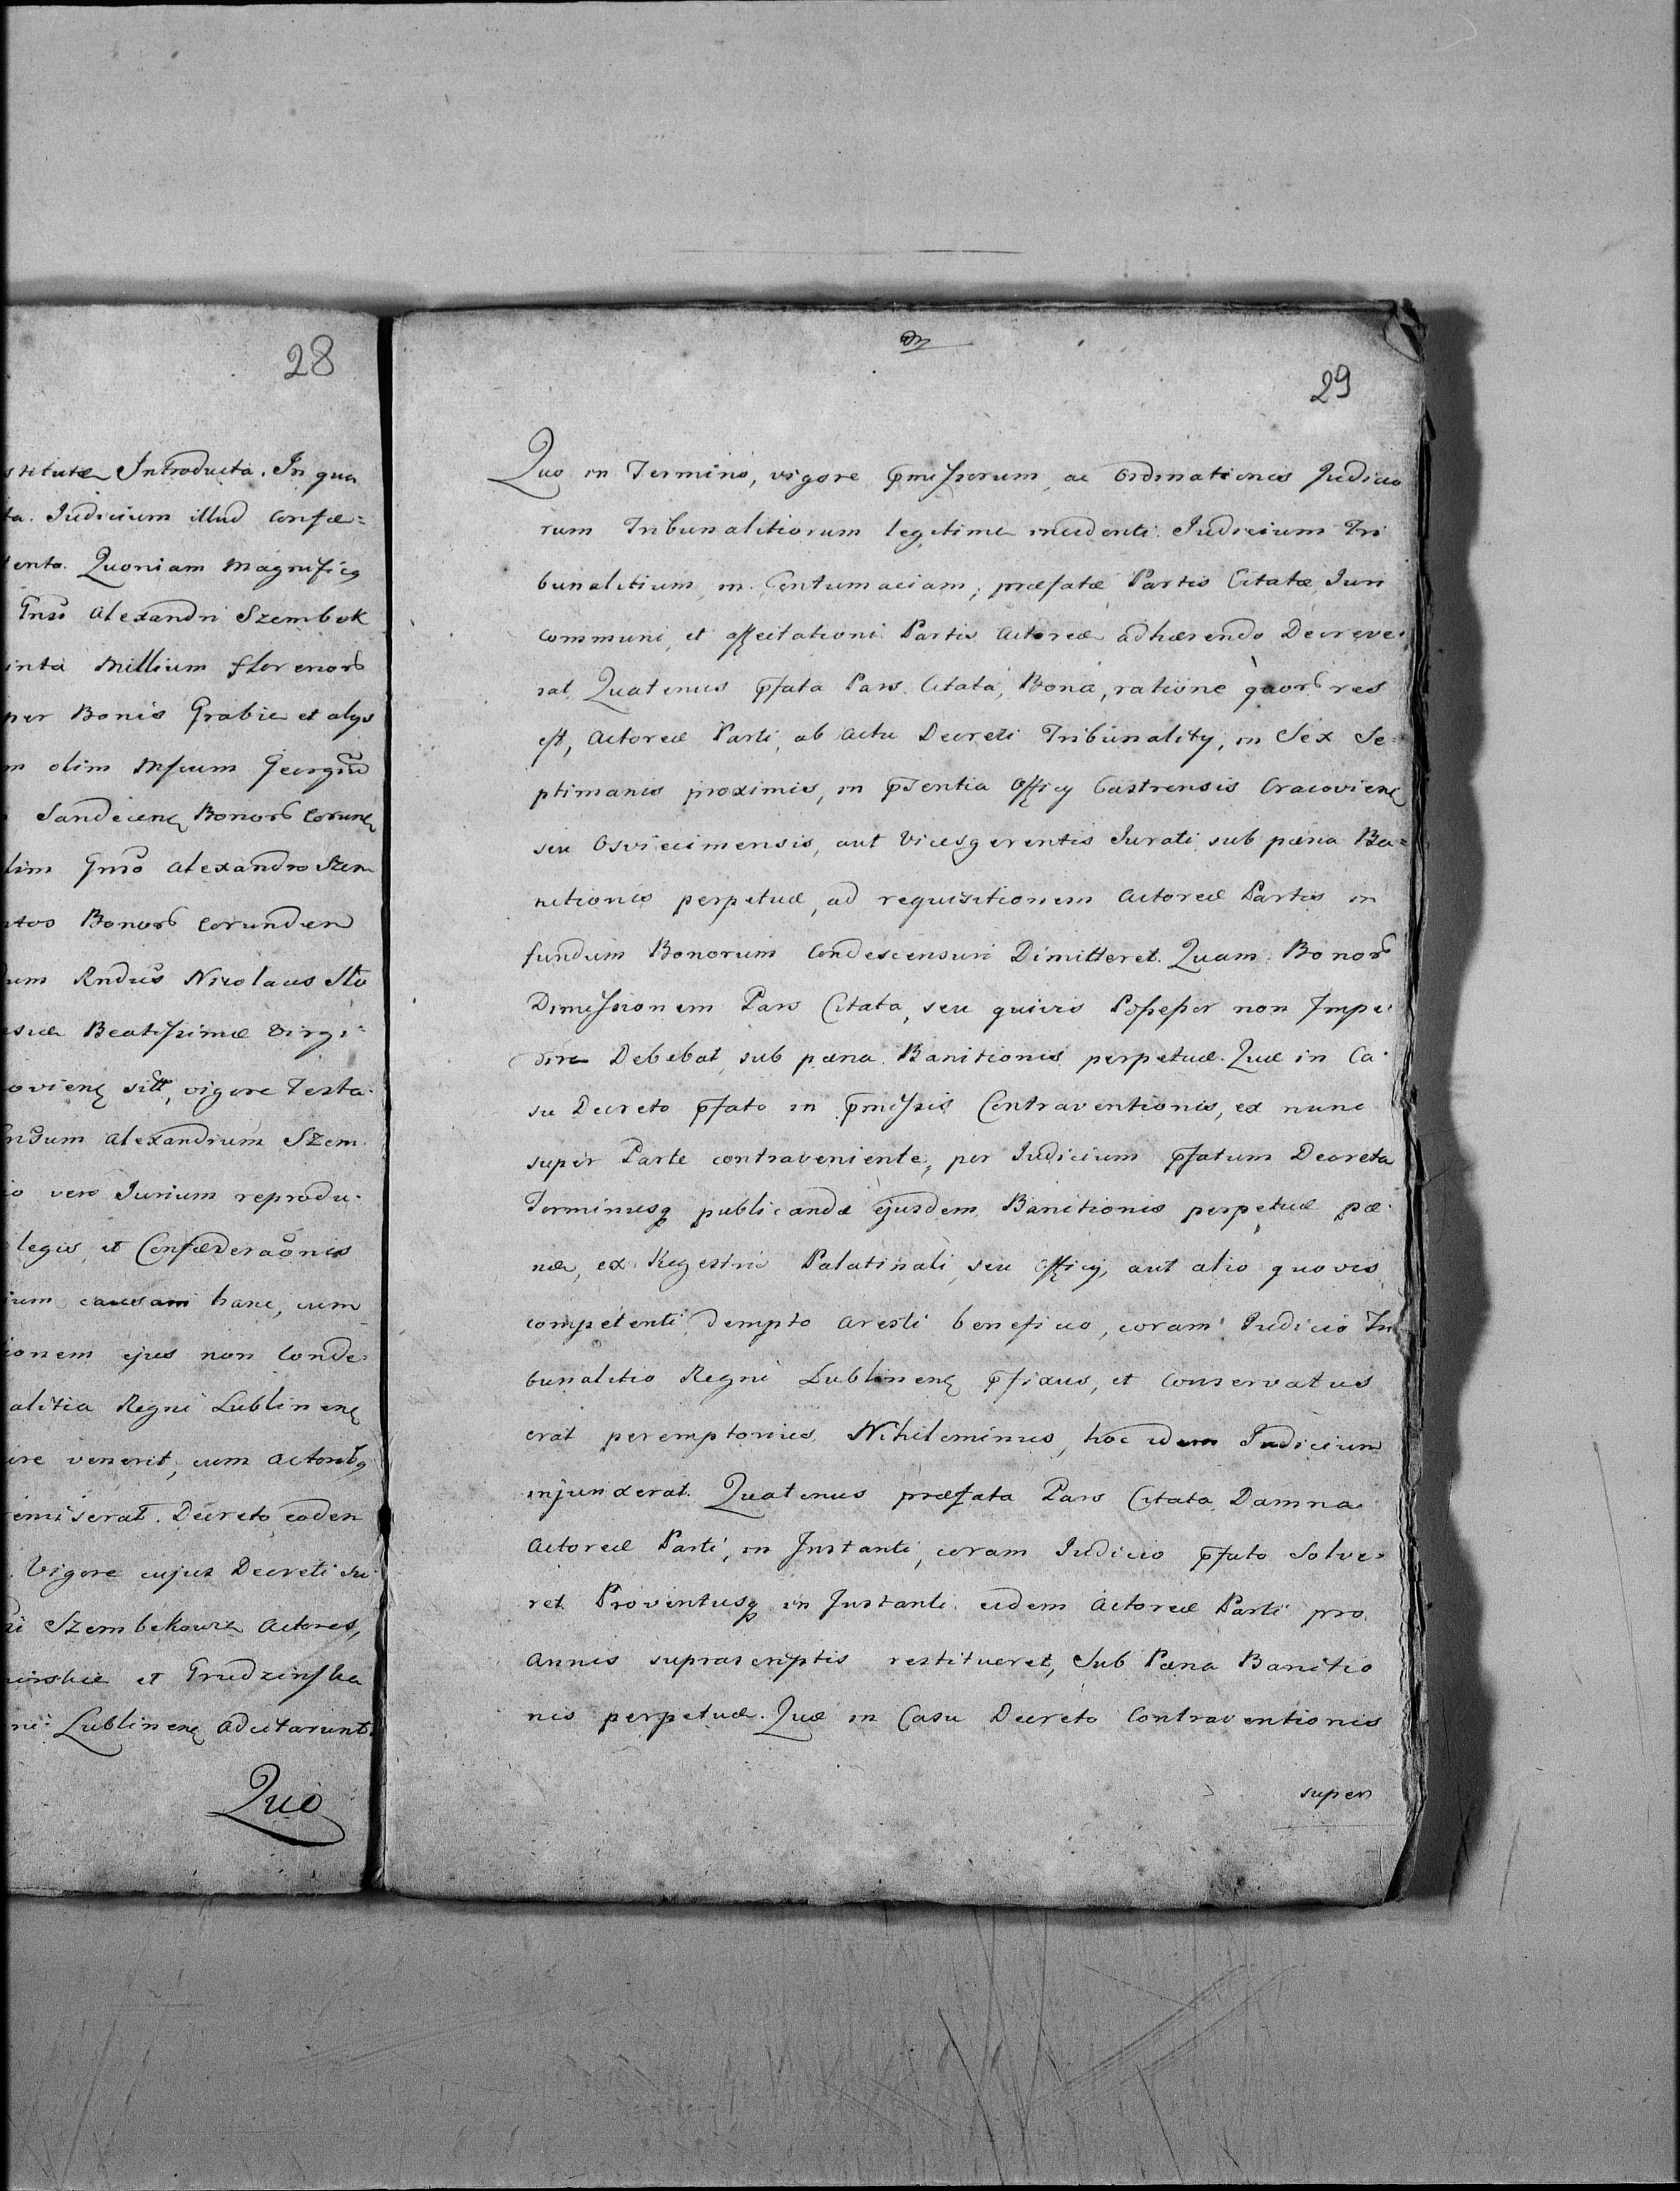 28
stitutæ Introducta. In qua
ta. Judicium illud confæ=
tento. Quoniam Magnificq
Gnsi Alexandri Szembek
inta Millium florenorb
per Bonis Grabie et alys
m olim Mficum Georgiū
Sandecieng Bonorb corung
lim Gnso Alexandro Szem
ntos Bonorb corundem
um Rndus Nicolaus Sto
esiæ Beatissimæ Virgi=
ovieng sitt, vigore Testa=
Gnsum Alexandrum Szem
io vero Jurium reprodu=
legis, et Confæderaōnis
ium causam hanc, cum
ionem ejus non Conde=
alitia Regni Lublineng
ire venerit, cum Actorib9
remiserat. Decreto eodem
Vigore cujus Decreti su=
ni Szembekowie Actores,
inskie et Grudzinska
ni Lublineng Adcitarunt.
Quo
29
Quo in Termino, vigore pmissorum, ac Ordinationis Judicio
rum Tribunalitiorum legitime incidenti. Judicium Tri
bunalitium in Contumaciam, præfatæ Partis Citatæ, Juri
communi, et affectationi Partis Actoreæ adhærendo Decreve=
rat. Quatenus pfata Pars Citata, Bona, ratione quorb res
est, Actoreæ Parti, ab Actu Decreti Tribunality, in Sex Se=
ptimanis proximis, in psentia Officy Castrensis Cracovieng
seu Osviecimensis, aut Vicesgerentis Jurati, sub pæna Ba=
nitionis perpetuæ, ad requisitionem Actoreæ Partis in
fundum Bonorum Condescensuri Dimitteret. Quam Bonorb
Dimissionem Pars Citata, seu quivis Possessor non Impe=
dire Debebat, sub pæna Banitionis perpetuæ. Quæ in Ca=
su Decreto pfato in pmissis Contraventionis, ex nunc
super Parte contraveniente, per Judicium pfatum Decreta
Terminusq publicandæ ejusdem Banitionis perpetuæ pæ=
næ, ex Regestris Palatinali, seu officy, aut alio quovis
competenti, dempto Aresti beneficio, coram Judicio Tri
bunalitio Regni Lublineng pfixus, et conservatus
erat peremptorius. Nihilominus, hoc idem Judicium
injunxerat. Quatenus præfata Pars Citata Damna
Actoreæ Parti, in Instanti, coram Judicio pfato Solve=
ret. Proventusq in Instanti eidem Actoreæ Parti pro
Annis suprascriptis restitueret, Sub Pæna Banitio
nis perpetuæ. Quæ in Casu Decreto Contraventionis
super